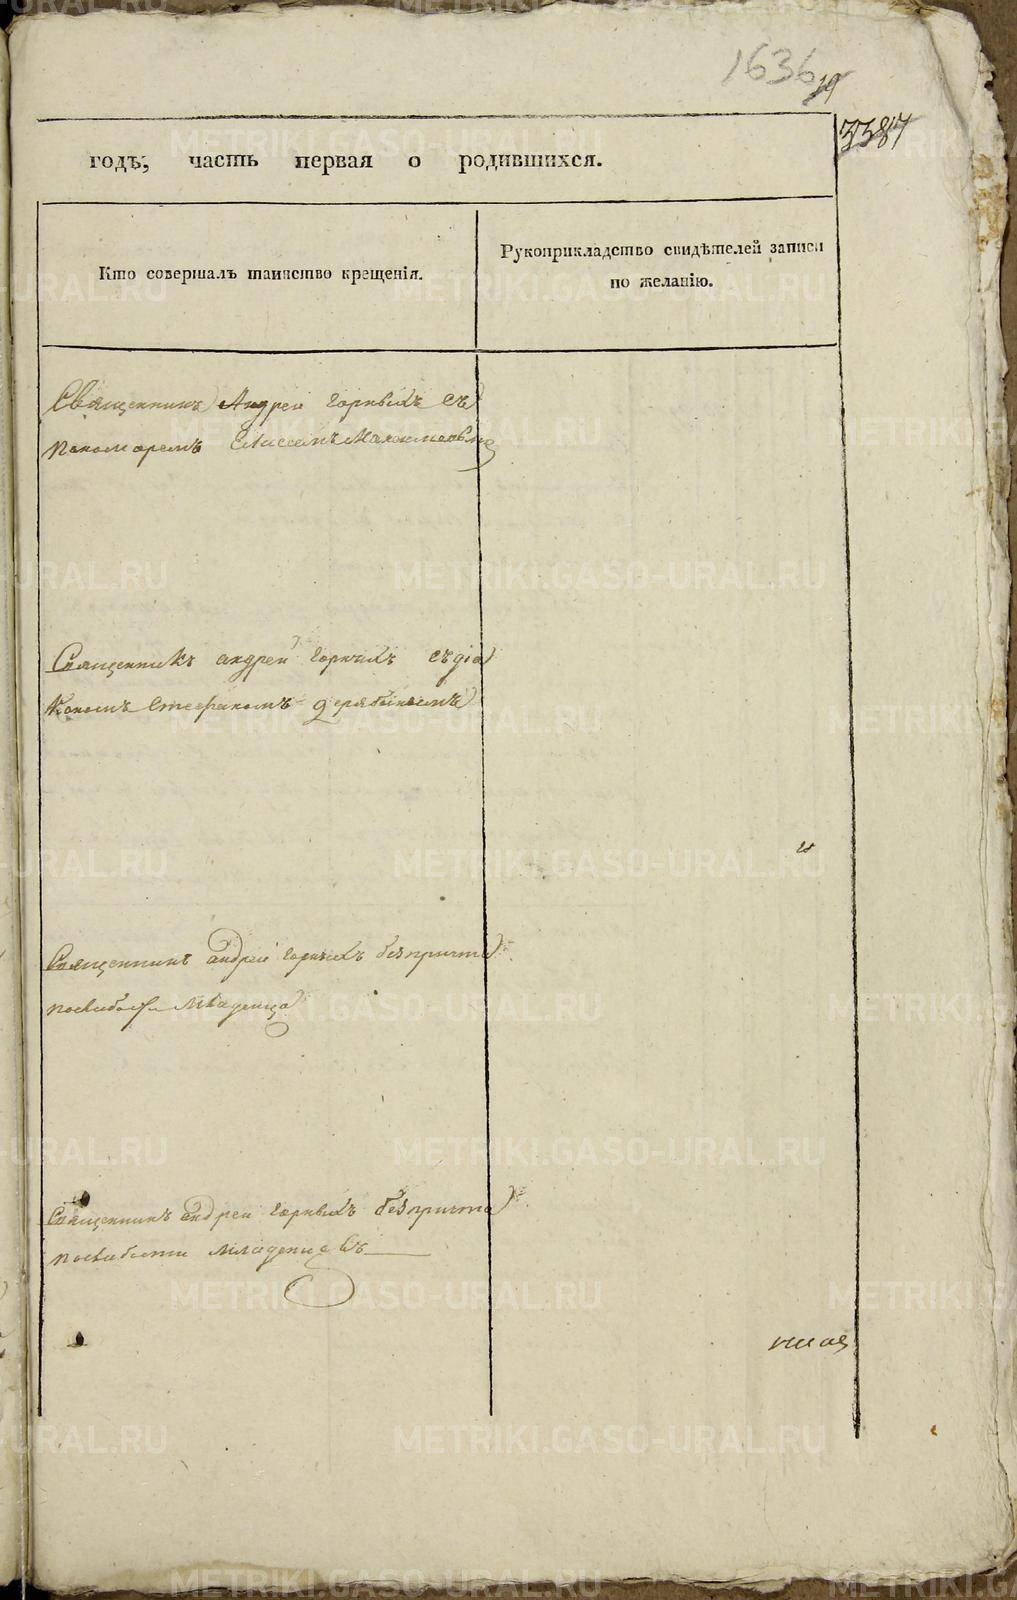 1636
19
3387
годъ, часть первая о родившихся.
Кто совершалъ таинство крещенія.
Рукоприкладство свидѣтелей записи
по желанію.
Священникъ Андреи Горныхъ съ
пономаремъ
Священникъ андреи Горныхъ съ діа
кономъ Стефаномъ Дерябинымъ
Священникъ андреи Горныхъ безпричта
послабости младенца
Священникъ андреи Горныхъ безпричта
послабости младенцевъ
METRIKI.GASO-URAL.RU